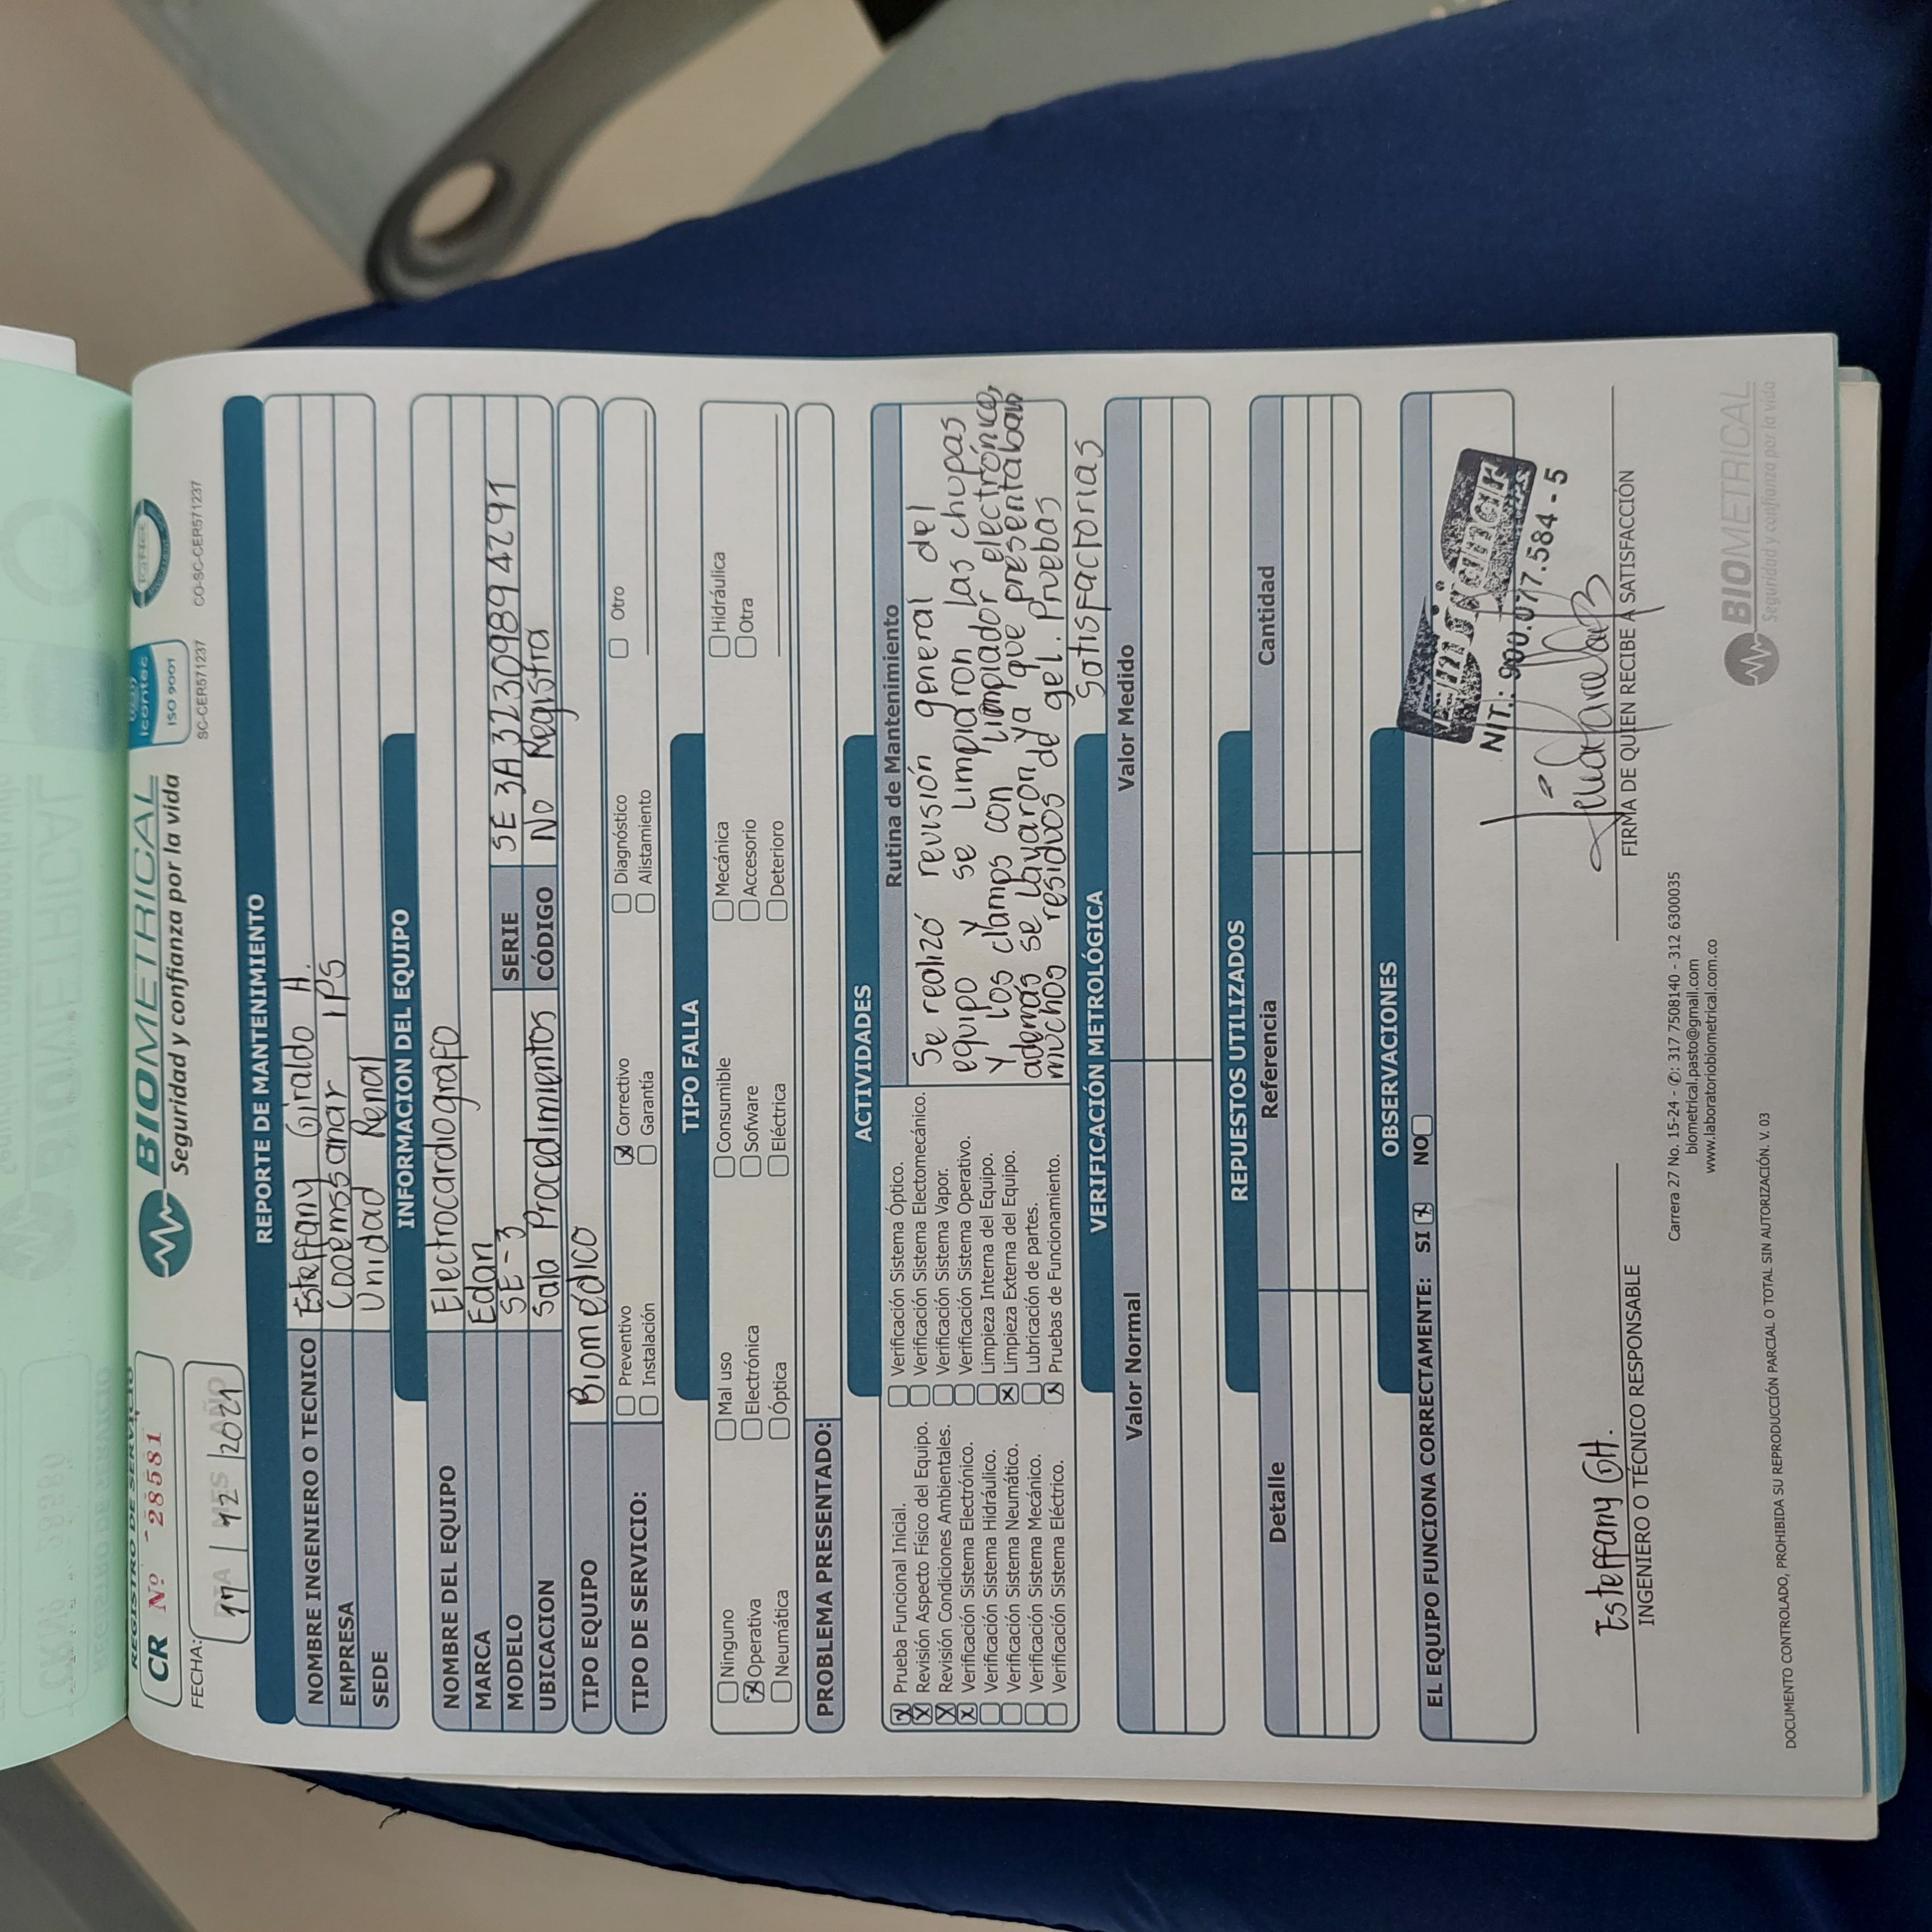 REGISTRO DE SERVICIO
CR Nº 28580
BIOMETRICAL
Seguridad y confianza por la vida
REGISTRO DE SERVICIO
CR Nº 28581
BIOMETRICAL
Seguridad y confianza por la vida
icontec
ISO 9001
SC-CER571237
IQNet
CO-SC-CER571237
FECHA:
DIA MES AÑO
17 12 2021
REPORTE DE MANTENIMIENTO
NOMBRE INGENIERO O TECNICO Esteffany Giraldo H.
EMPRESA Cooemssanar IPS
SEDE Unidad Renal
INFORMACION DEL EQUIPO
NOMBRE DEL EQUIPO Electrocardiografo
MARCA Edan
MODELO SE-3 SERIE SE 3A32309894291
UBICACION Sala Procedimientos CÓDIGO No Registra
TIPO EQUIPO Biomédico
TIPO DE SERVICIO:
Preventivo Correctivo Diagnóstico Otro
Instalación Garantía Alistamiento
TIPO FALLA
Ninguno Mal uso Consumible Mecánica Hidráulica
Operativa Electrónica Sofware Accesorio Otra
Neumática Óptica Eléctrica Deterioro
PROBLEMA PRESENTADO:
ACTIVIDADES
Prueba Funcional Inicial.
Revisión Aspecto Físico del Equipo.
Revisión Condiciones Ambientales.
Verificación Sistema Electrónico.
Verificación Sistema Hidráulico.
Verificación Sistema Neumático.
Verificación Sistema Mecánico.
Verificación Sistema Eléctrico.
Verificación Sistema Óptico.
Verificación Sistema Electomecánico.
Verificación Sistema Vapor.
Verificación Sistema Operativo.
Limpieza Interna del Equipo.
Limpieza Externa del Equipo.
Lubricación de partes.
Pruebas de Funcionamiento.
Rutina de Mantenimiento
Se realizó revisión general del
equipo y se limpiaron las chupas
y los clamps con limpiador electrónico,
además se lavaron, ya que presentaban
muchos residuos de gel. Pruebas
satisfactorias
VERIFICACIÓN METROLÓGICA
Valor Normal Valor Medido
REPUESTOS UTILIZADOS
Detalle Referencia Cantidad
OBSERVACIONES
EL EQUIPO FUNCIONA CORRECTAMENTE: SI NO
Emssanar
IPS
NIT.: 900.077.584 - 5
Esteffany GH.
INGENIERO O TÉCNICO RESPONSABLE
FIRMA DE QUIEN RECIBE A SATISFACCIÓN
Carrera 27 No. 15-24 - ✆: 317 7508140 - 312 6300035
biometrical.pasto@gmail.com
www.laboratoriobiometrical.com.co
BIOMETRICAL
Seguridad y confianza por la vida
DOCUMENTO CONTROLADO, PROHIBIDA SU REPRODUCCIÓN PARCIAL O TOTAL SIN AUTORIZACIÓN. V. 03